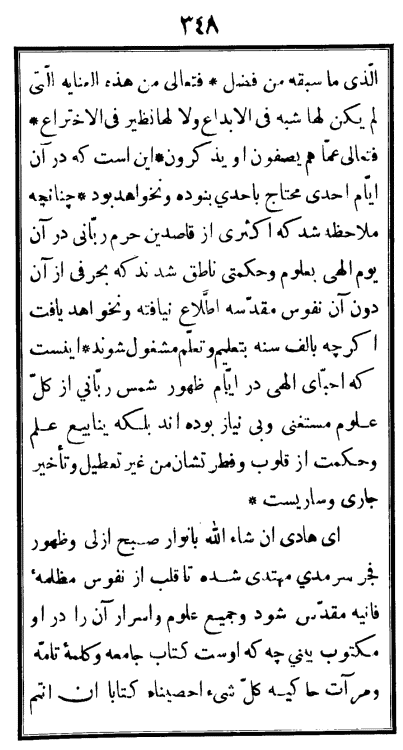 ٣٤٨
الّذی ما سبقه من فضل * فتعالی من هذه العنایه الّتی
لم یکن لها شبه فی الابداع ولا لها نظیر فی الاختراع *
فتعالی عمّا هم یصفون او یذکرون * این است که در آن
ایّام احدی محتاج باحدي بنوده ونخواهد بود * چنانچه
ملاحظه شد که اکثری از قاصدین حرم ربّانی در آن
یوم الهی بعلوم وحکمتی ناطق شدند که بحرفی از آن
دون آن نفوس مقدّسه اطّلاع نیافته ونخواهد یافت
اکرچه بالف سنه بتعلیم وتعلّم مشغول شوند * اینست
که احبّای الهی در ایّام ظهور شمس ربّاني از کلّ
علوم مستغنی وبی نیاز بوده اند بلکه ینابیع علم
وحکمت از قلوب وفطرتشان من غیر تعطیل وتأخیر
جاری وساریست *
ای هادی ان شاء الله بانوار صبح ازلی وظهور
فجر سرمدي مهتدی شده تا قلب از نفوس مظلمهٔ
فانیه مقدّس شود وجمیع علوم واسرار آن را در او
مکتوب بیني چه که اوست کتاب جامعه وکلمهٔ تامّه
ومرآت حاکیه کلّ شیء احصیناه کتابا ان انتم